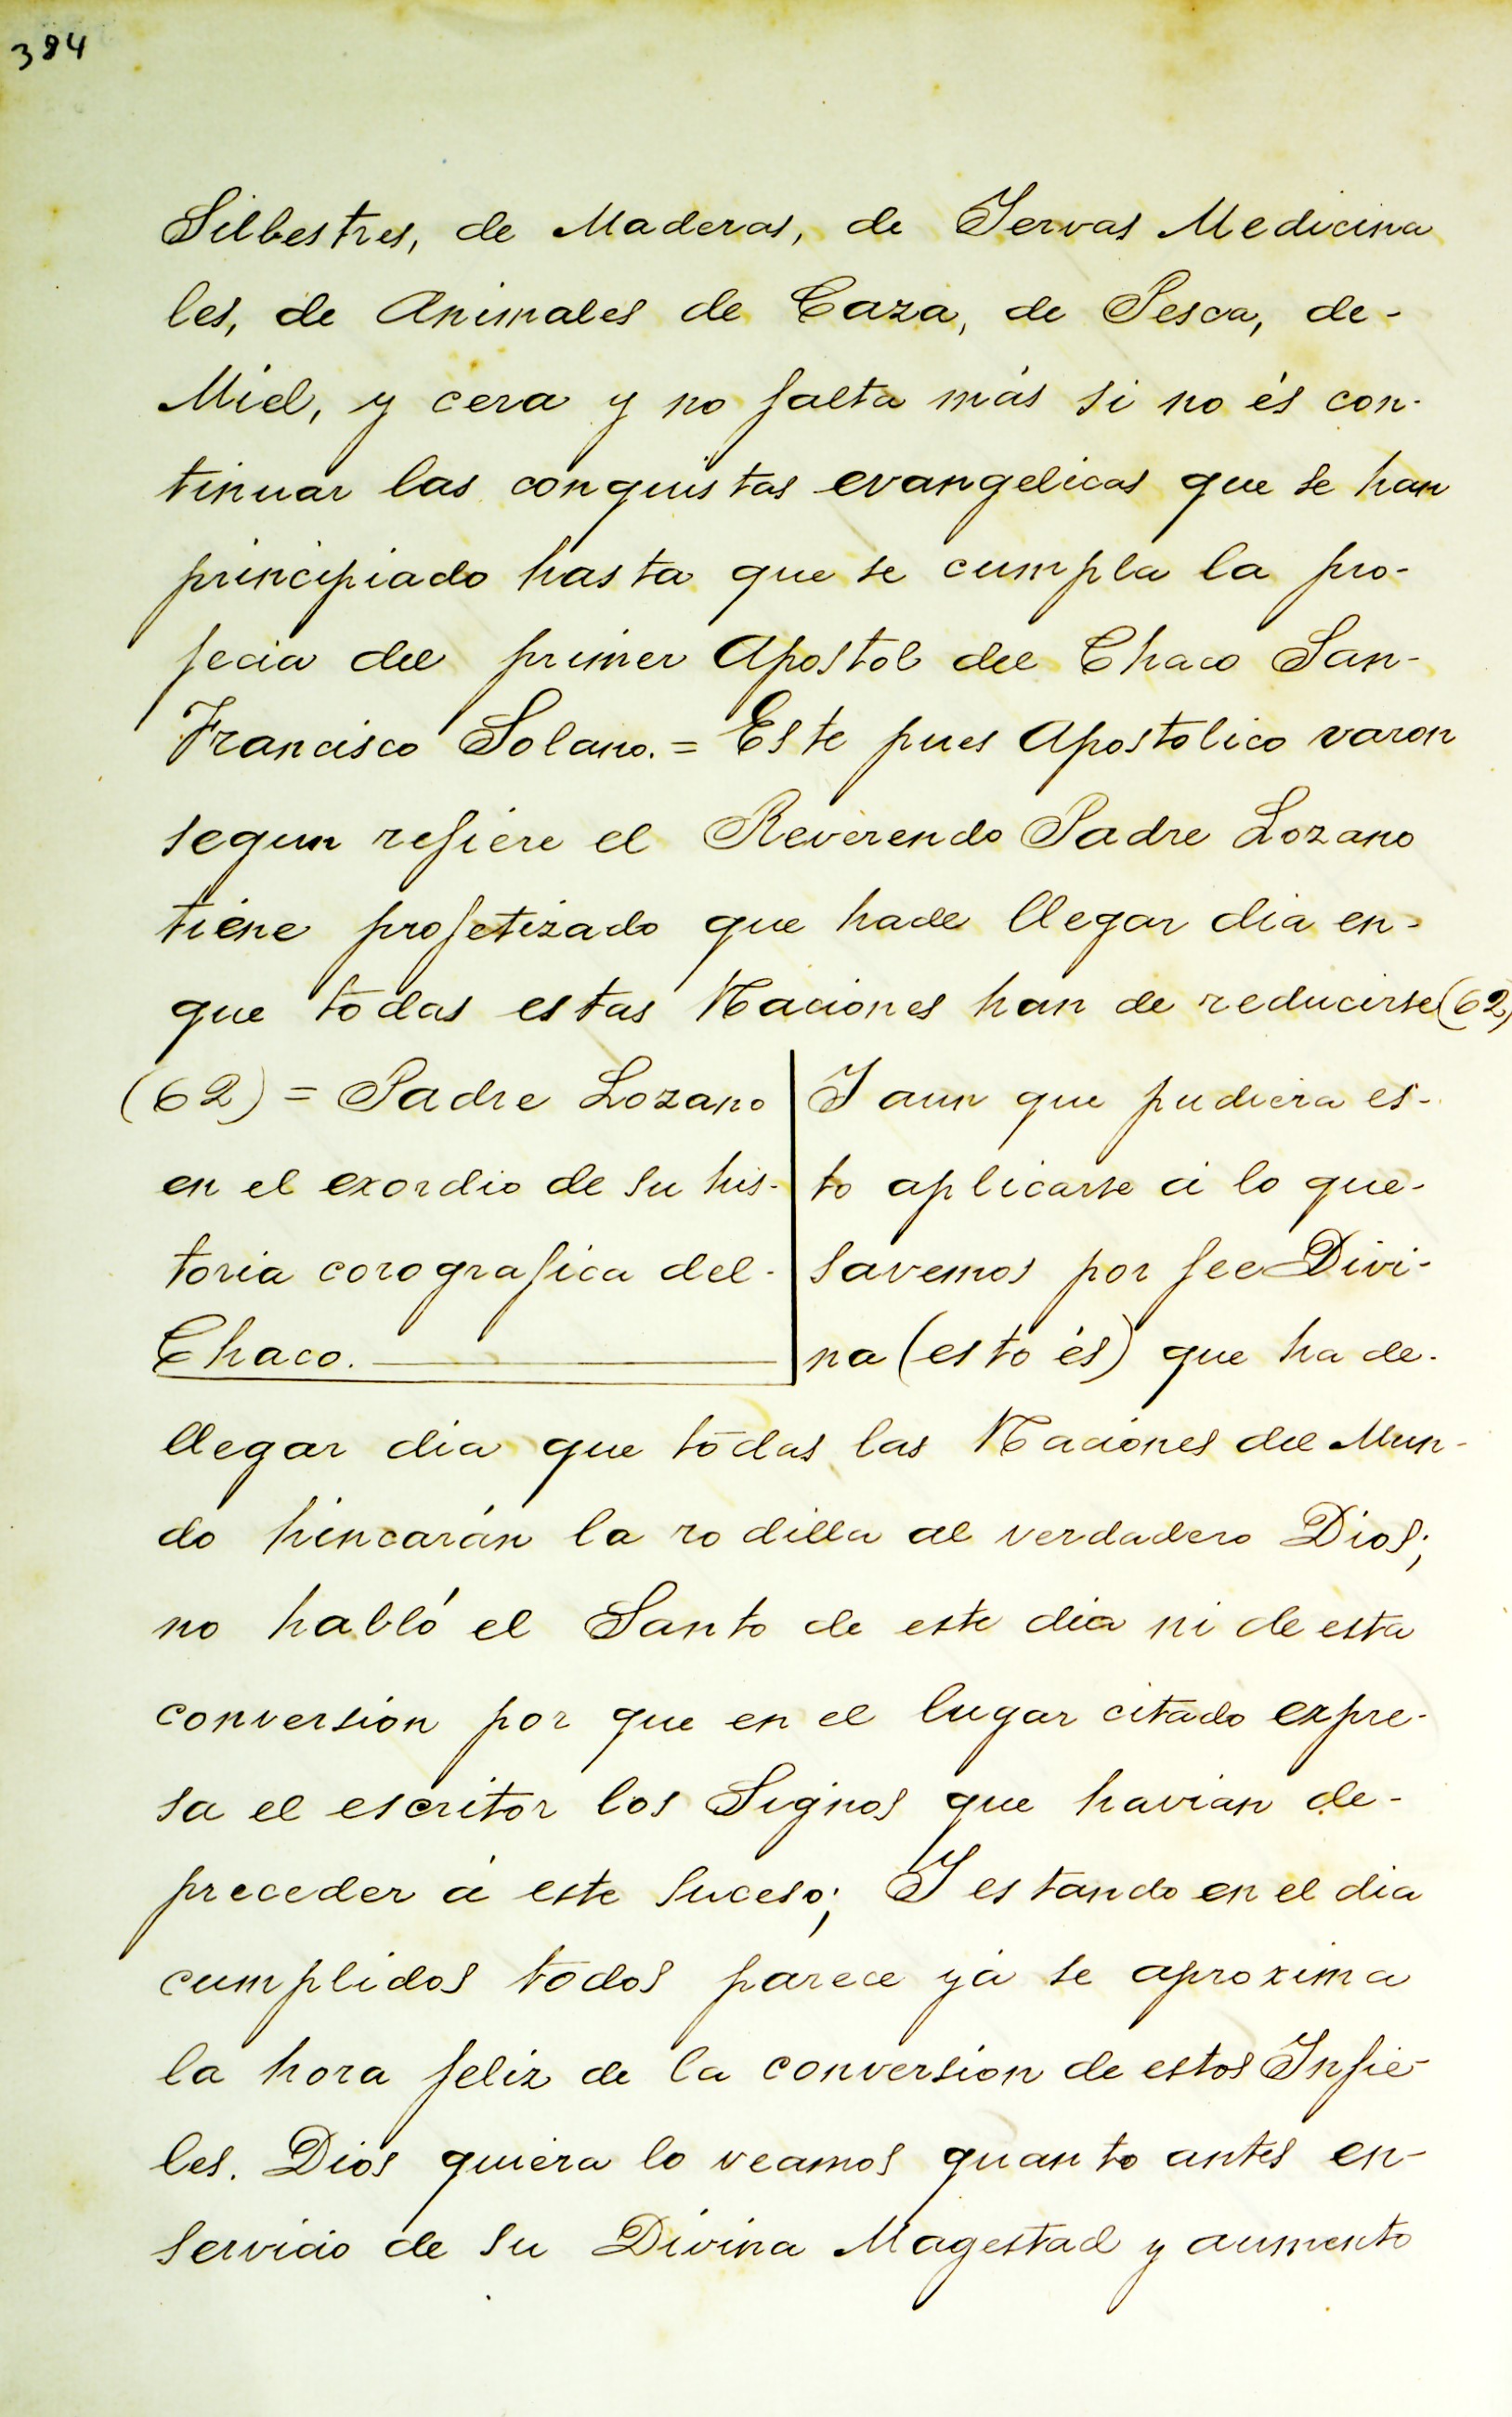 384
Silbestres, de Maderas, de Iervas Medicina
les, de Animales de Caza, de Pesca, de-
Miel, y cera y no falta más si no és con-
tinuar las conquistas evangelicas que se han
principiado hasta que se cumpla la pro-
fecia del primer Apostol del Chaco San-
Francisco Solano. = Este pues Apostolico varon
segun refiere el Reverendo Padre Lozano
tiene profetizado que hade llegar dia en-
que todas estas Naciones han de reducirse (62)
(62) = Padre Lozano
en el exordio de su his-
toria corografica del-
Chaco.
I aun que pudiera es-
to aplicarse á lo que-
savemos por fee Divi-
na (esto és) que ha de-
llegar dia que todas las Naciones del Mun-
do hincarán la rodilla al verdadero Dios;
no habló el Santo de este dia ni de esta
conversion por que en el lugar citado expre-
sa el escritor los Signos que havian de-
preceder á este suceso; I estando en el dia
cumplidos todos parece yá se aproxima
la hora feliz de la conversion de estos Infie-
les. Dios quiera lo veamos quanto antes en-
servicio de su Divina Magestad y aumento